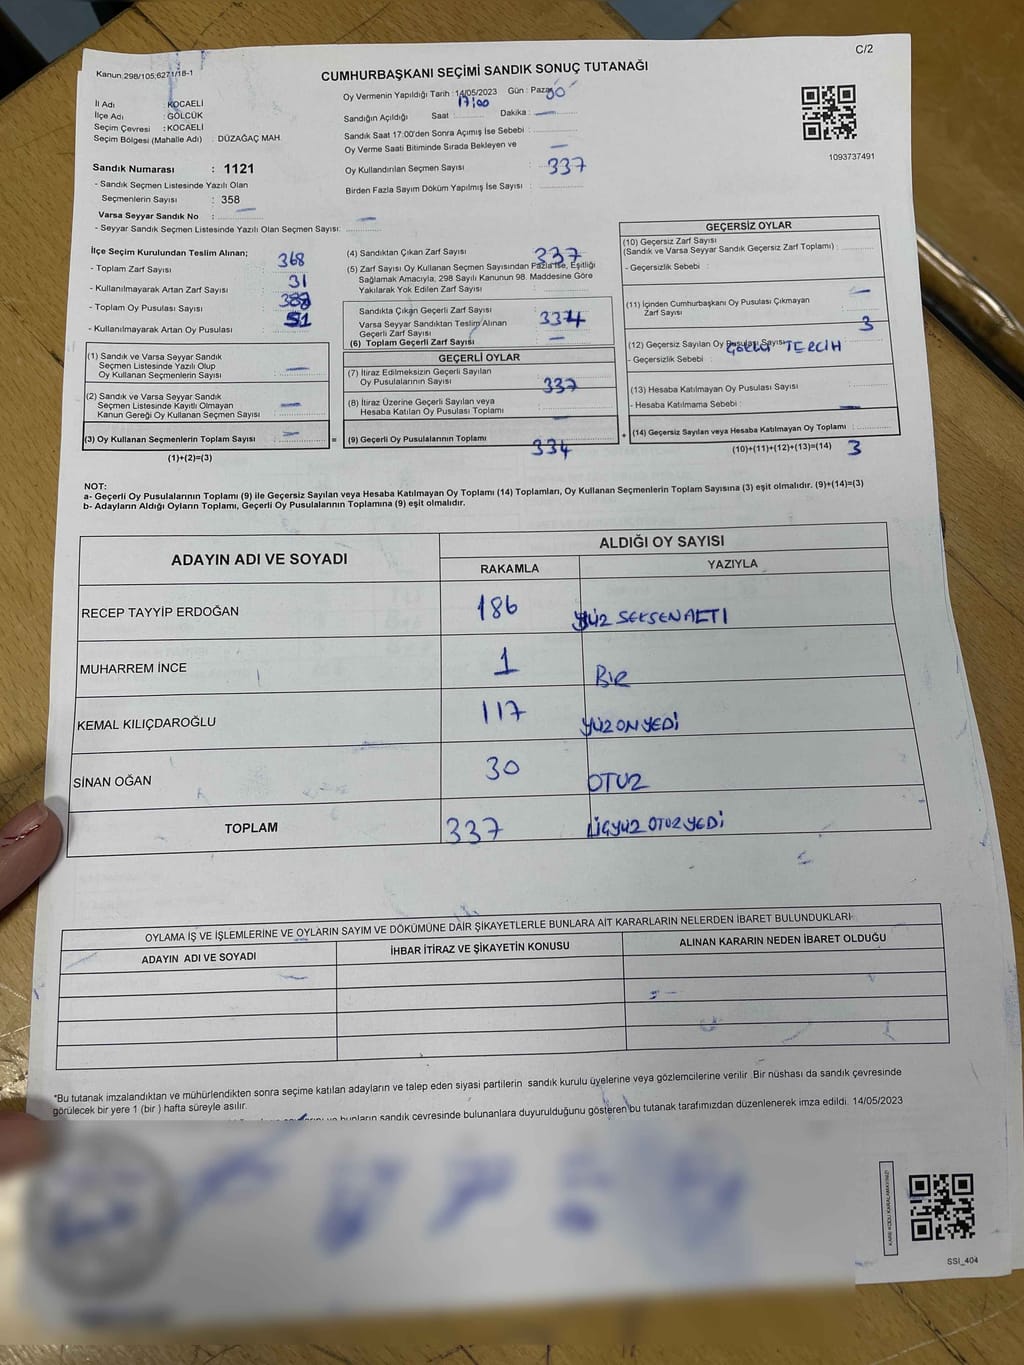 C/2
Kanun:298/105,6271/18-1
CUMHURBAŞKANI SEÇİMİ SANDIK SONUÇ TUTANAĞI
İl Adı : KOCAELİ
İlçe Adı : GÖLCÜK
Seçim Çevresi : KOCAELİ
Seçim Bölgesi (Mahalle Adı) : DÜZAĞAÇ MAH.
Sandık Numarası : 1121
- Sandık Seçmen Listesinde Yazılı Olan
Seçmenlerin Sayısı : 358
Varsa Seyyar Sandık No :
- Seyyar Sandık Seçmen Listesinde Yazılı Olan Seçmen Sayısı:
Oy Vermenin Yapıldığı Tarih : 14/05/2023 Gün : Pazar
Sandığın Açıldığı Saat 17:00 Dakika :
Sandık Saat 17:00'den Sonra Açımış İse Sebebi :
Oy Verme Saati Bitiminde Sırada Bekleyen ve
Oy Kullandırılan Seçmen Sayısı : 337
Birden Fazla Sayım Döküm Yapılmış İse Sayısı :
1093737491
İlçe Seçim Kurulundan Teslim Alınan;
- Toplam Zarf Sayısı 368
- Kullanılmayarak Artan Zarf Sayısı 31
- Toplam Oy Pusulası Sayısı
- Kullanılmayarak Artan Oy Pusulası 51
(1) Sandık ve Varsa Seyyar Sandık
Seçmen Listesinde Yazılı Olup
Oy Kullanan Seçmenlerin Sayısı
(2) Sandık ve Varsa Seyyar Sandık
Seçmen Listesinde Kayıtlı Olmayan
Kanun Gereği Oy Kullanan Seçmen Sayısı
(3) Oy Kullanan Seçmenlerin Toplam Sayısı
(1)+(2)=(3)
(4) Sandıktan Çıkan Zarf Sayısı 337
(5) Zarf Sayısı Oy Kullanan Seçmen Sayısından Fazla İse, Eşitliği
Sağlamak Amacıyla, 298 Sayılı Kanunun 98. Maddesine Göre
Yakılarak Yok Edilen Zarf Sayısı :
Sandıkta Çıkan Geçerli Zarf Sayısı
Varsa Seyyar Sandıktan Teslim Alınan
Geçerli Zarf Sayısı
(6) Toplam Geçerli Zarf Sayısı
GEÇERLİ OYLAR
(7) İtiraz Edilmeksizin Geçerli Sayılan
Oy Pusulalarının Sayısı 337
(8) İtiraz Üzerine Geçerli Sayılan veya
Hesaba Katılan Oy Pusulası Toplamı
= (9) Geçerli Oy Pusulalarının Toplamı 334
GEÇERSİZ OYLAR
(10) Geçersiz Zarf Sayısı
(Sandık ve Varsa Seyyar Sandık Geçersiz Zarf Toplamı) :
- Geçersizlik Sebebi :
(11) İçinden Cumhurbaşkanı Oy Pusulası Çıkmayan
Zarf Sayısı
3
(12) Geçersiz Sayılan Oy Pusulası Sayısı
- Geçersizlik Sebebi : TERCİH
(13) Hesaba Katılmayan Oy Pusulası Sayısı
- Hesaba Katılmama Sebebi :
+ (14) Geçersiz Sayılan veya Hesaba Katılmayan Oy Toplamı :
(10)+(11)+(12)+(13)=(14) 3
NOT:
a- Geçerli Oy Pusulalarının Toplamı (9) ile Geçersiz Sayılan veya Hesaba Katılmayan Oy Toplamı (14) Toplamları, Oy Kullanan Seçmenlerin Toplam Sayısına (3) eşit olmalıdır. (9)+(14)=(3)
b- Adayların Aldığı Oyların Toplamı, Geçerli Oy Pusulalarının Toplamına (9) eşit olmalıdır.
ADAYIN ADI VE SOYADI
ALDIĞI OY SAYISI
RAKAMLA YAZIYLA
RECEP TAYYİP ERDOĞAN 186 YÜZ SEKSENALTI
MUHARREM İNCE 1 BİR
KEMAL KILIÇDAROĞLU 117 YÜZONYEDİ
SİNAN OĞAN 30 OTUZ
TOPLAM 337 ÜÇYÜZ OTUZYEDİ
OYLAMA İŞ VE İŞLEMLERİNE VE OYLARIN SAYIM VE DÖKÜMÜNE DAİR ŞİKAYETLERLE BUNLARA AİT KARARLARIN NELERDEN İBARET BULUNDUKLARI
ADAYIN ADI VE SOYADI İHBAR İTİRAZ VE ŞİKAYETİN KONUSU ALINAN KARARIN NEDEN İBARET OLDUĞU
*Bu tutanak imzalandıktan ve mühürlendikten sonra seçime katılan adayların ve talep eden siyasi partilerin sandık kurulu üyelerine veya gözlemcilerine verilir .Bir nüshası da sandık çevresinde
görülecek bir yere 1 (bir ) hafta süreyle asılır.
bunların sandık çevresinde bulunanlara duyurulduğunu gösteren bu tutanak tarafımızdan düzenlenerek imza edildi. 14/05/2023
KARE KODU KARALAMAYINIZ!
SSİ_404